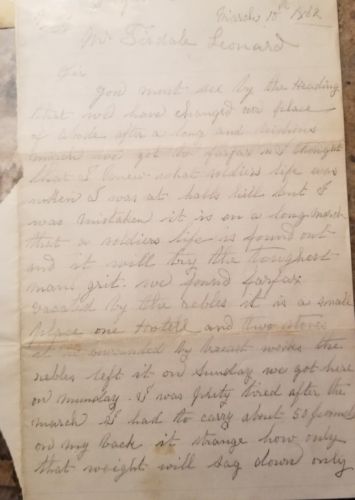 March 15th 1862
Mr Tisdale Leonard
Sir
you must see by the heading
that we have changed our place
of abode after a long and
march we got to fairfax I thought
that I knew what soldiers life was
when I was at halls hill but I
was mistaken it is on a long march
that a soldiers life is found out
and it will try the toughest
mans grit. we found fairfax
vacated by the rebles it is a small
place one hotell and two stores
it is surounded by breast works the
rebles left it on Sunday we got here
on munday I was prity tired after the
march I had to carry about 50 pounds
on my back it strange how only
that weight will sag down only